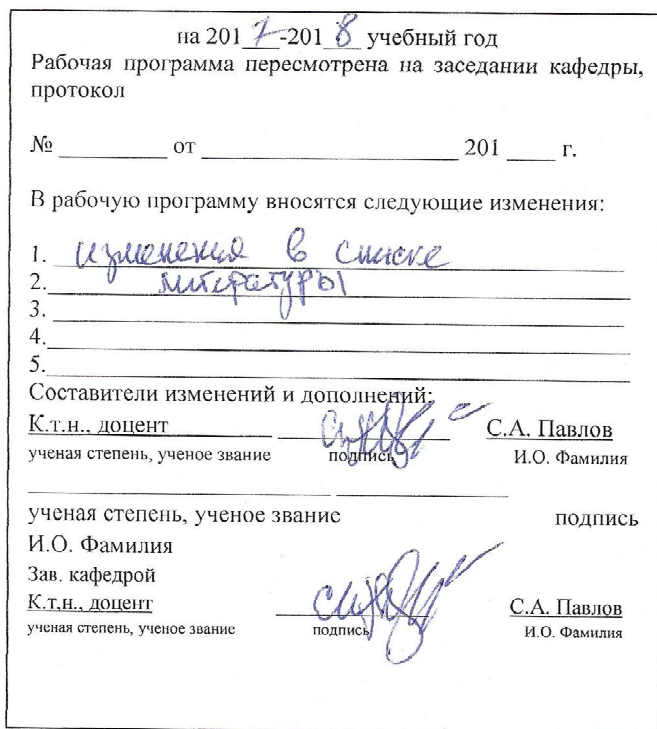 на 2017-2018 учебный год
Рабочая программа пересмотрена на заседании кафедры,
протокол
№ __________ от ________________________ 201 ____ г.
В рабочую программу вносятся следующие изменения:
1. изменения в списке
2. литературы
3.
4.
5.
Составители изменений и дополнений:
К.т.н., доцент С.А. Павлов
ученая степень, ученое звание подпись И.О. Фамилия
ученая степень, ученое звание подпись
И.О. Фамилия
Зав. кафедрой
К.т.н., доцент С.А. Павлов
ученая степень, ученое звание подпись И.О. Фамилия